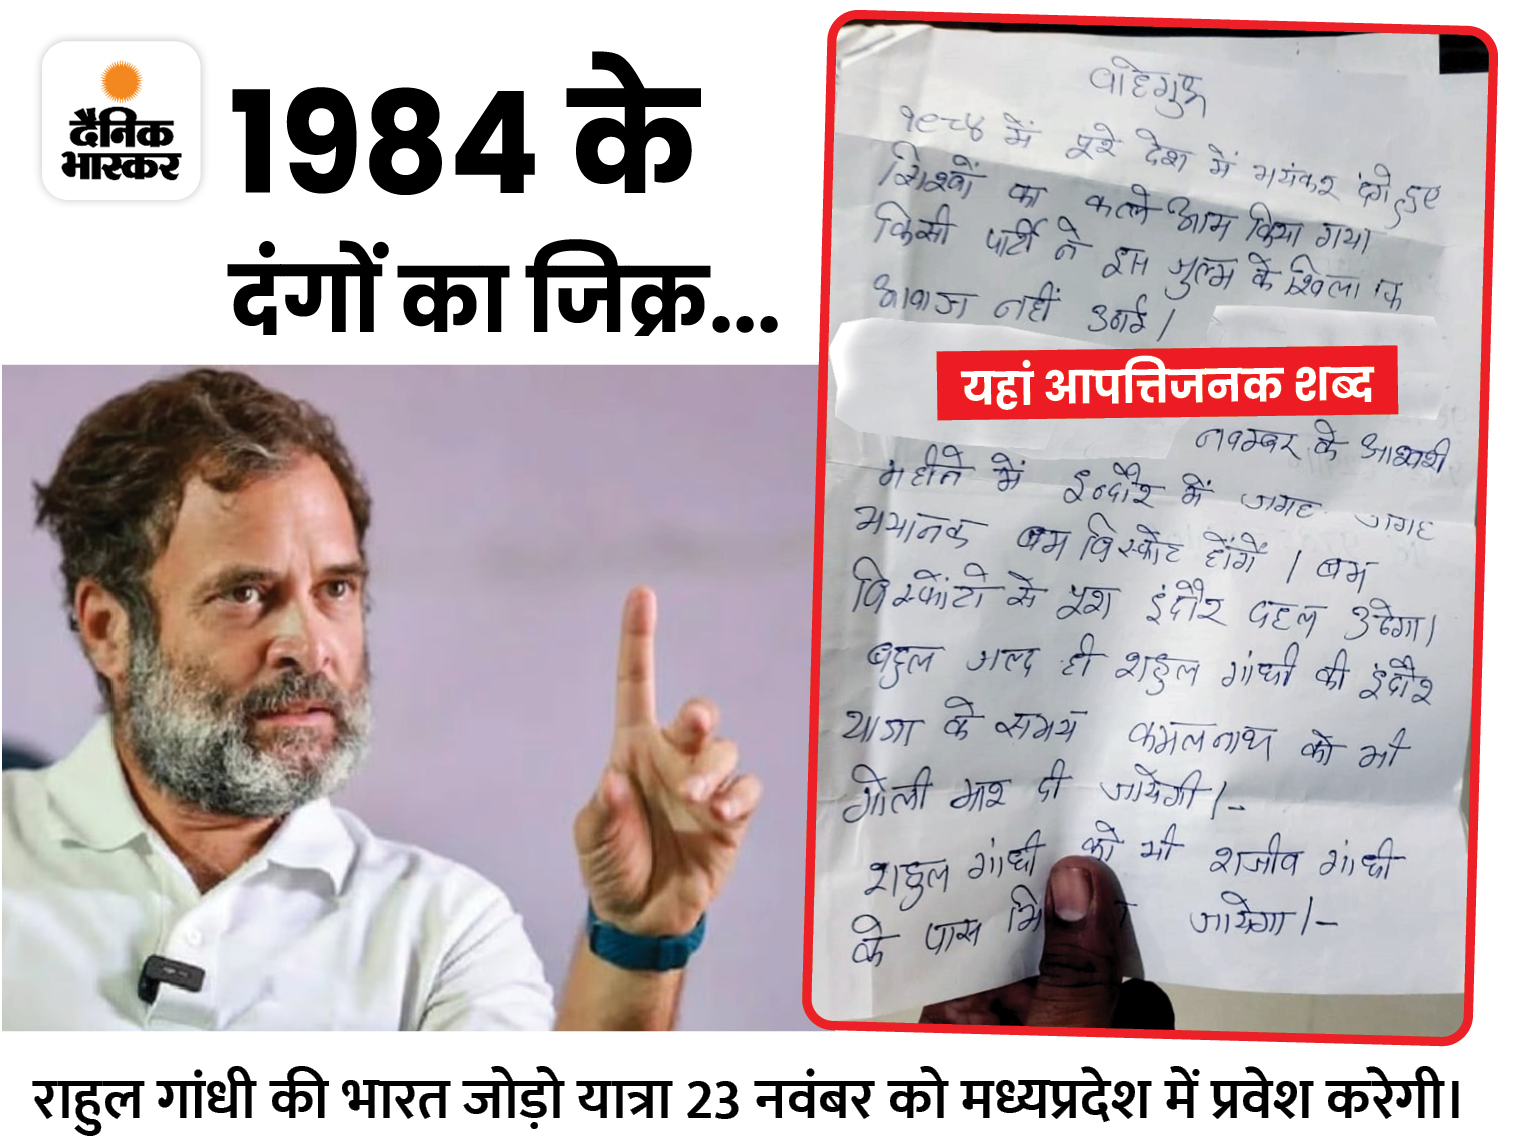 दैनिक
भास्कर
1984 के
दंगों का जिक्र...
वाहेगुरू
१९८४ में पूरे देश में भयंकर दंगे हुए
सिखों का कत्ले आम किया गया
किसी पार्टी ने इस जुल्म के खिलाफ
आवाज नहीं उठाई।
यहां आपत्तिजनक शब्द
नवम्बर के आखरी
महीने में इन्दौर में जगह जगह
भयानक बम विस्फोट होंगें। बम
विस्फोटो से पूरा इंदौर दहल उठेगा।
बहुत जल्द ही राहुल गांधी की इंदौर
यात्रा के समय कमलनाथ को भी
गोली मार दी जायेगी।-
राहुल गांधी को भी राजीव गांधी
के पास जायेगा।-
राहुल गांधी की भारत जोड़ो यात्रा 23 नवंबर को मध्यप्रदेश में प्रवेश करेगी।